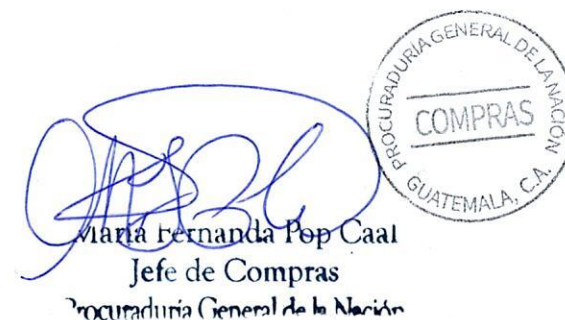 PROCURADURIA GENERAL DE LA NACIÓN
COMPRAS
GUATEMALA, C.A.
María Fernanda Pop Caal
Jefe de Compras
Procuraduría General de la Nación